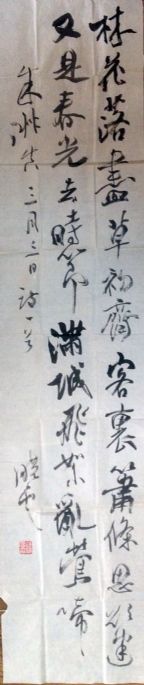 林花落盡草初齊客裏蕭條思欲迷
又是春光去時節滿城飛絮亂鶯啼
朱淑真三月三日詩一首